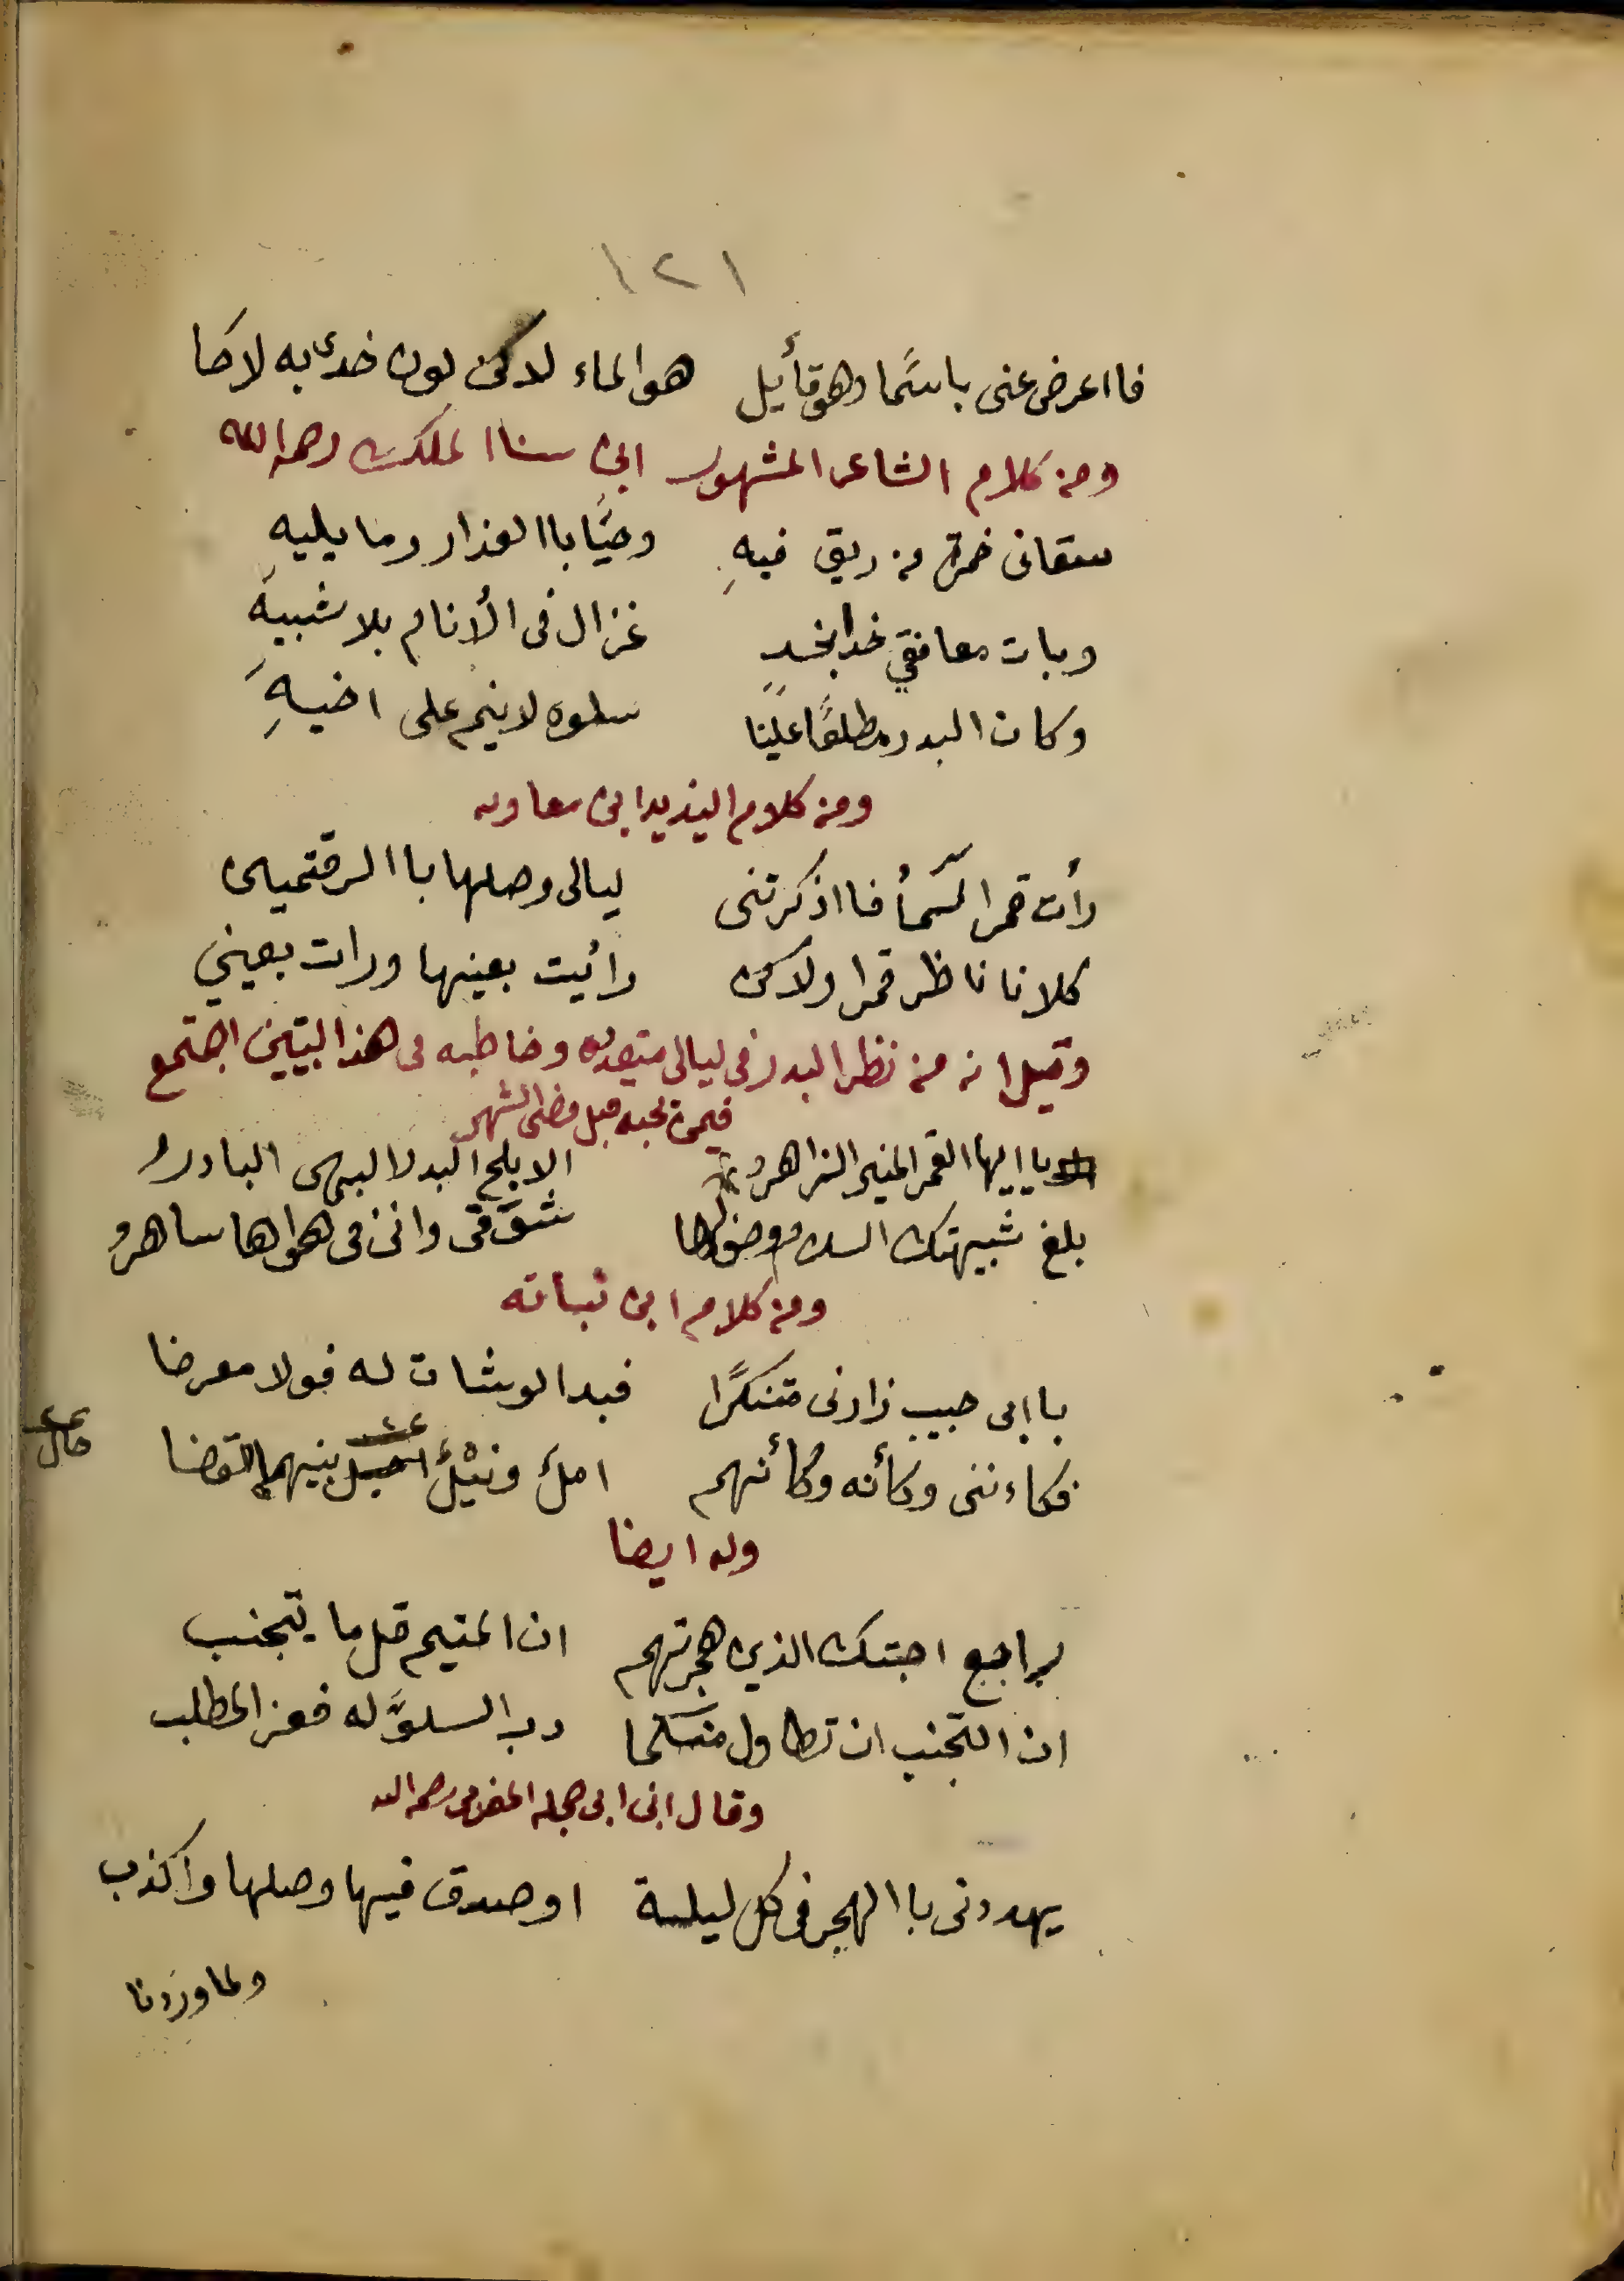 ١٢١
فااعرض عنى باسما وهو قأيل هو الماء لاكن لون خدى به لاحا
ومن كلام الشاعر المشهور ابن سنا الملك رحمه الله
سقانى خمرة من ريق فيهِ وحيَّا باالعذار وما يليهِ
وبات معانقي خدا بخدٍ غزال فى الأنام بلا شبيهِ
وكان البدر مطلعًا علينا سلوه لاينم على اخيهِ
ومن كلام اليزيد ابن معاويه
رأت قمر السمأ فااذكرتنى ليالى وصلها باالرقتمين
كلانا ناظر قمرا ولاكن رائيت بعينها ورات بعيني
وقيل انه من نظر البدر فى ليالى متعدده وخاطبه فى هذا البيتين اجتمع
فيمن يحبه قبل مضى الشهر
ياايها القمر المنير الزاهرو الابلج البدر البهى البادرُ
بلغ شبيهتك السلام وقول لها شوقى وانى فى هواها ساهرو
ومن كلام ابن نباته
باابى حبيب زارنى متنكرًا فبدا الوشات له فولا معرضا
فكاءننى وكأنه وكأنهم املُ ونيْلُ بينهما القضا
حال
وله ايضا
راجع احبتك الذين هجرتهم ان المتيم قل ما يتجنب
ان التجنب ان تطاول منكما دب السلوَّ له فعز المطلب
وقال ابن ابى حجله المغربى رحمه الله
يهددنى باالهجر فى كل ليلة اوصدق فيها وصلها واكذب
ولما وردنا